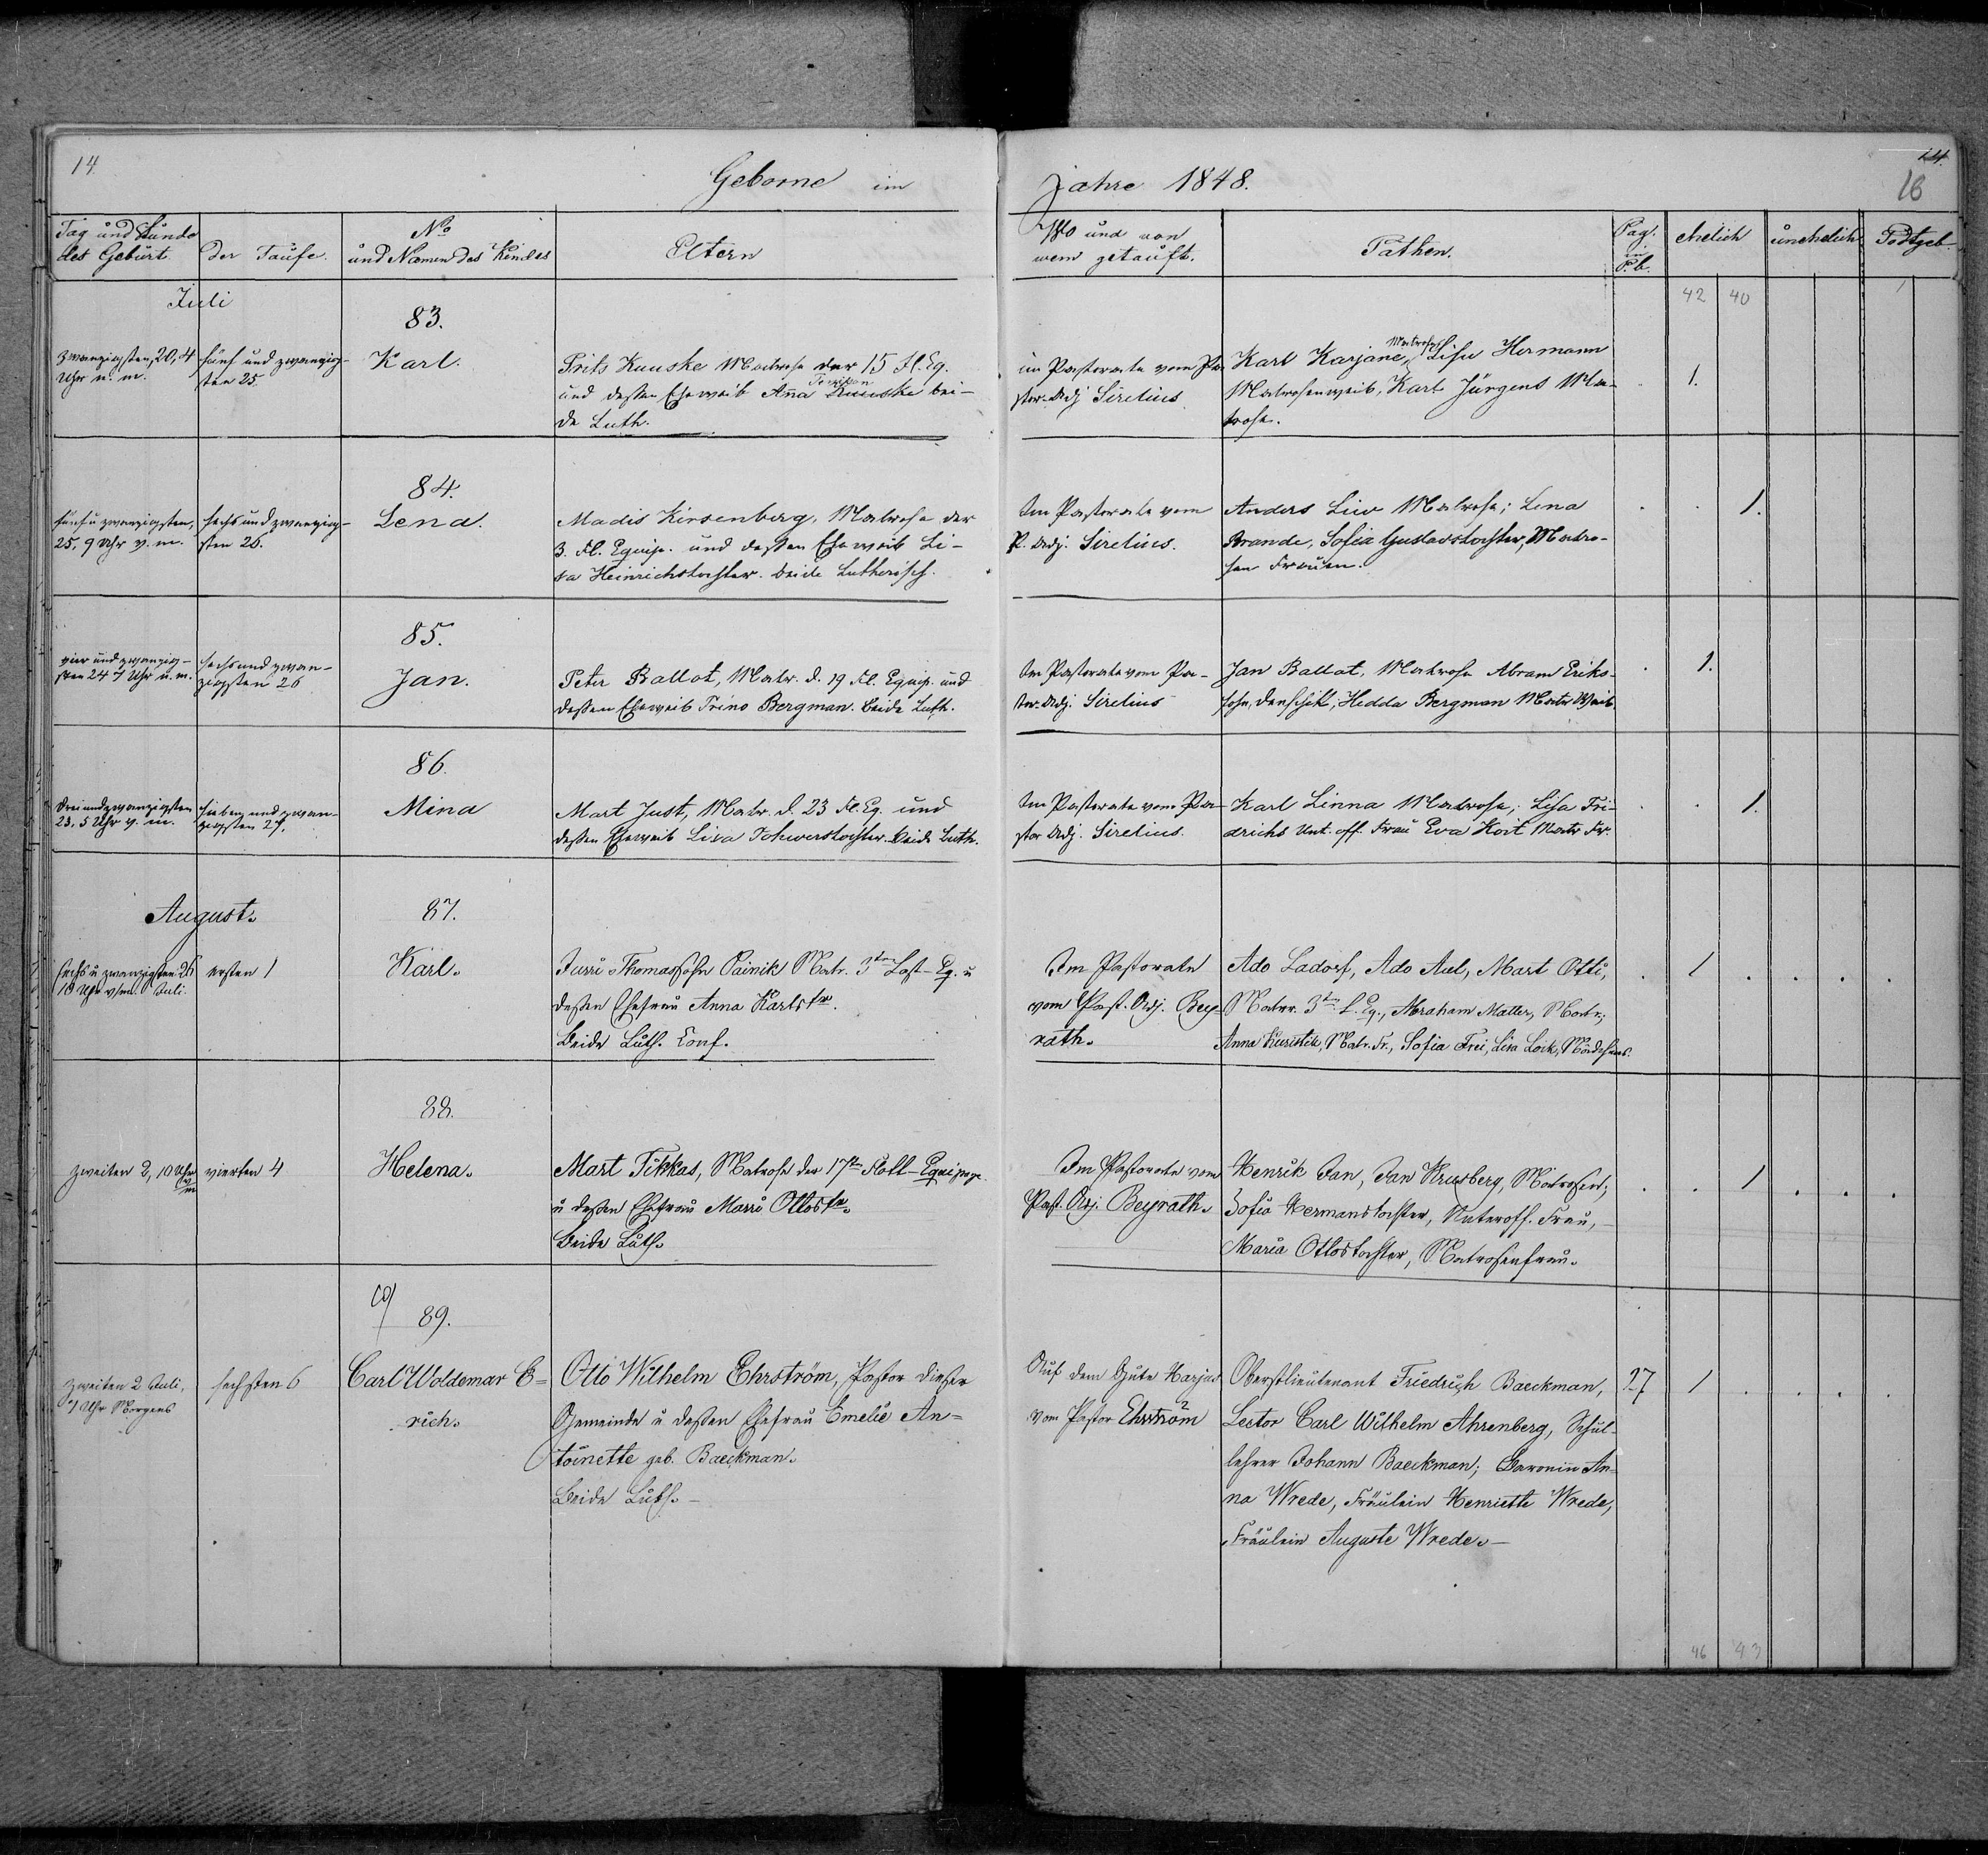 14.
Geborne im
Jahre 1848.
14.
16
Tag und Stunde
der Geburt.
der Taufe.
No
und Namen des Kindes
Eltern
Wo und von
wem getauft.
Pathen.
Pag.
in
P.b.
ehelich
unehelich
Todtgeb.
42 40 1
Juli
83.
zwanzigsten, 20, 4
Uhr n. m.
fünf und zwanzig-
sten 25
Karl.
Frits Kuuske Matrose der 15 Fl. Eg.
und dessen Eheweib Anna Kuuske bei-
de Luth.
im Pastorate vom Pa-
stor-Adj Sirelius
Matrose
Karl Karjane, Lisu Hermann
Matrosenweib, Karl Jürgens Ma-
trose.
1.
84.
fünf u zwanzigsten,
25, 9 Uhr v. m.
sechs und zwanzig-
sten 26.
Lena.
Madis Kirsenberg, Matrose der
3. Fl. Equip. und dessen Eheweib Li-
sa Heinrichstochter. beide Lutherisch.
Im Pastorate vom
P. Adj. Sirelius.
Anders Liiv Matrose; Lena
Brande, Sofia Gustavstochter, Matro-
sen Frauen.
1.
85.
vier und zwanzig-
sten 24 7 Uhr n. m.
sechs und zwan-
zigsten 26
Jan.
Peter Ballot, Matr. d. 19 Fl. Equip. und
dessen Eheweib Trino Bergman. Beide Luth.
Im Pastorate vom Pa-
stor-Adj. Sirelius
Jan Ballat, Matrose Abram Eriks-
sohn, Denschik, Hedda Bergman Matr Weib.
1.
86.
drei und zwanzigsten
23, 5 Uhr v. m.
sieben und zwan-
zigsten 27,
Mina
Mart Just, Matr. d. 23 Fl. Eg. und
dessen Eheweib Lisa Tohverstochter. Beide Luth.
Im Pastorate vom Pa-
stor Adj. Sirelius.
Karl Linna Matrose; Lisa Fri-
drichs Unt. off. Frau Eva Koit Matr Fr.
1.
August.
87.
sechs u zwanzigsten 26
10 Uhr v/m. Juli.
ersten 1
Karl.
Jurri Thomassohn Painik Matr. 3ten Last-Eq. u
dessen Ehefrau Anna Karlstr.
Beide Luth. Conf.
Im Pastorate
vom Past. Adj. Bey-
rath.
Ado Ladorf, Ado Aul, Mart Otti,
Matr. 3ten L. Eq., Abraham Matler, Matr.;
Anna Kuristik, Matr. Fr., Sofia Frei, Lisa Lock, Mädchens.
1
88.
zweiten 2, 10 Uhr
v/m
vierten 4
Helena.
Mart Tikkas, Matrose der 17ten Flott-Equipage
u dessen Ehefrau Marri Ottostr.
Beide Luth.
Im Pastorate vom
Past. Adj. Beyrath.
Henrik Jan, Jan Krusberg, Matrosen;
Sofia Hermanstochter, Unteroff. Frau,
Maria Ottostochter, Matrosenfrau.
1
89.
zweiten 2 Juli,
7 Uhr Morgens
sechsten 6
Carl Woldemar E-
rich.
Otto Wilhelm Ehrström, Pastor dieser
Gemeinde u dessen Ehefrau Emelie An-
toinette geb. Baeckman.
Beide Luth.
Auf dem Gute Harjus
vom Pastor Ehrström
Oberstlieutenant Friedrich Baeckman,
Lector Carl Wilhelm Ahrenberg, Schul-
lehrer Johann Baeckman; Baronin An-
na Wrede, Fräulein Henriette Wrede,
Fräulein Auguste Wrede.
27
1
46 43